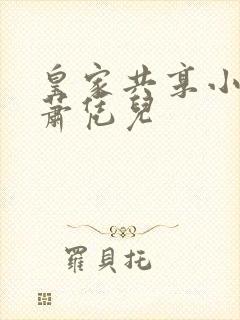 皇家共享小
蕭恁兒
羅貝托